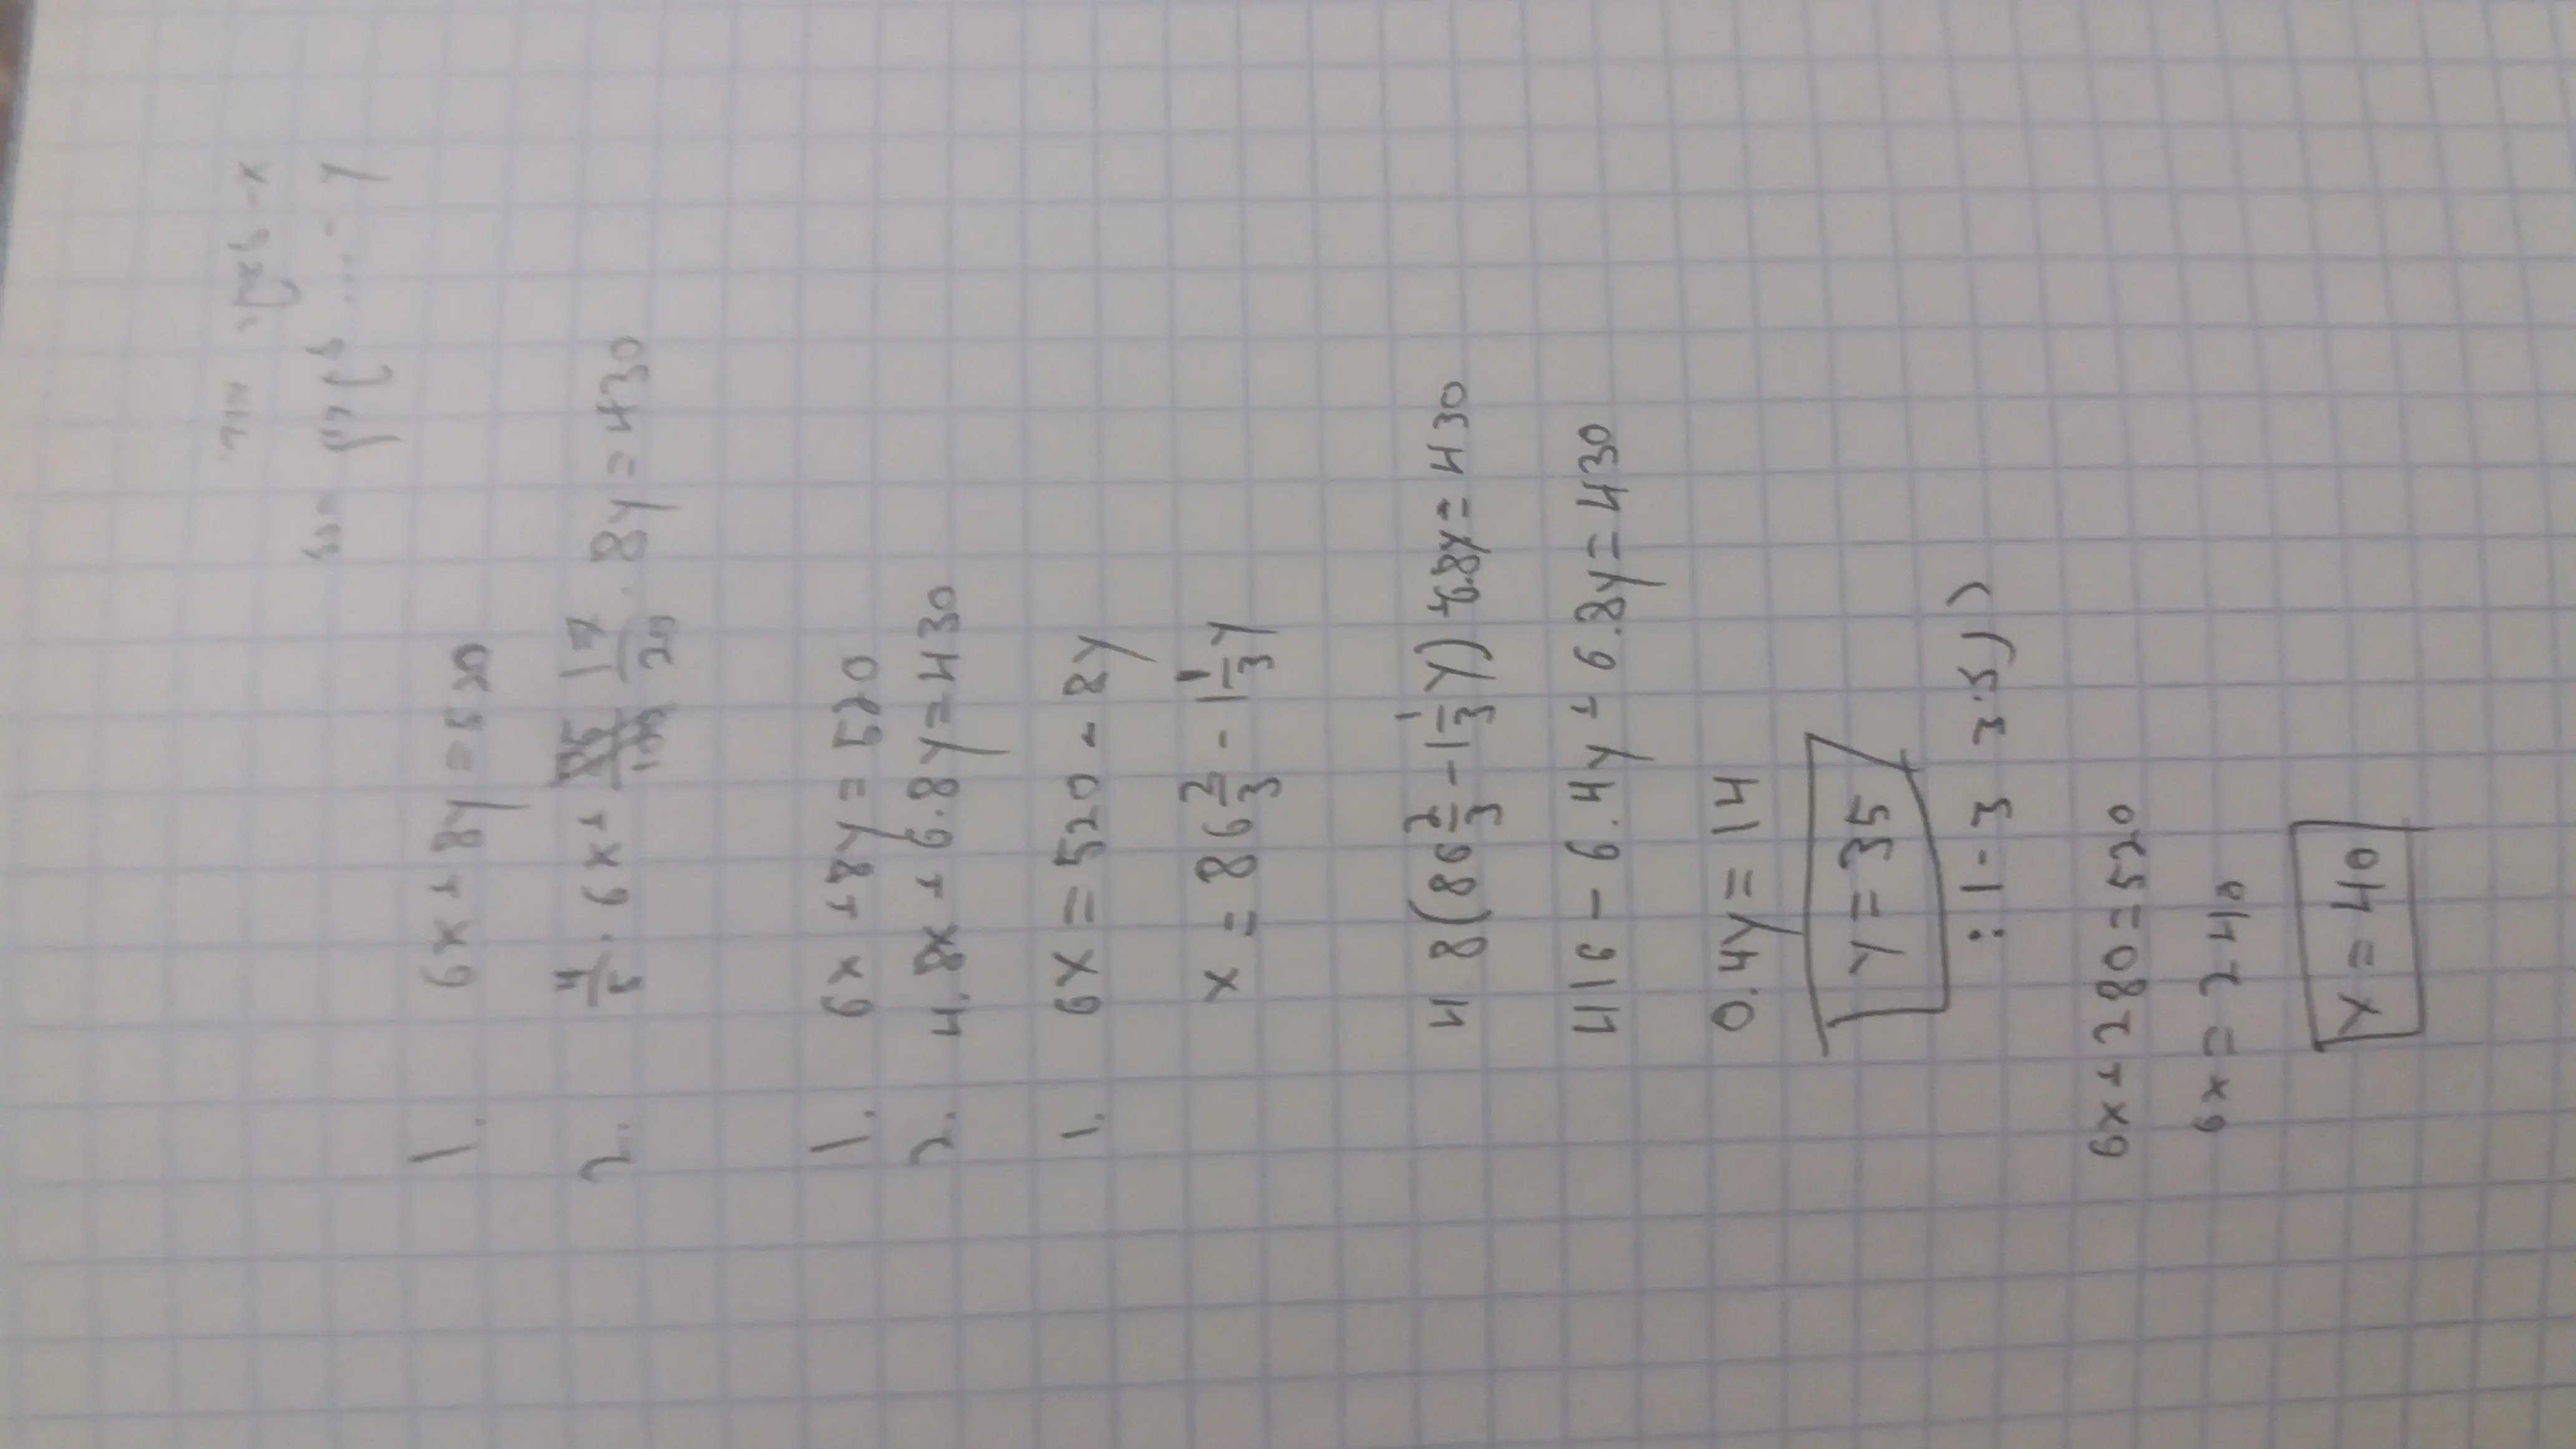 1. 6x+8y=520
2. 4/5 · 6x + 17/20 · 8y = 430
1. 6x+8y=520
2. 4.8x+6.8y=430
1. 6x=520-8y
x=86 2/3 - 1 1/3 y
4.8(86 2/3 - 1 1/3 y)+6.8y=430
416-6.4y+6.8y=430
0.4y=14
y=35
:1-3
6x+280=520
6x=240
x=40